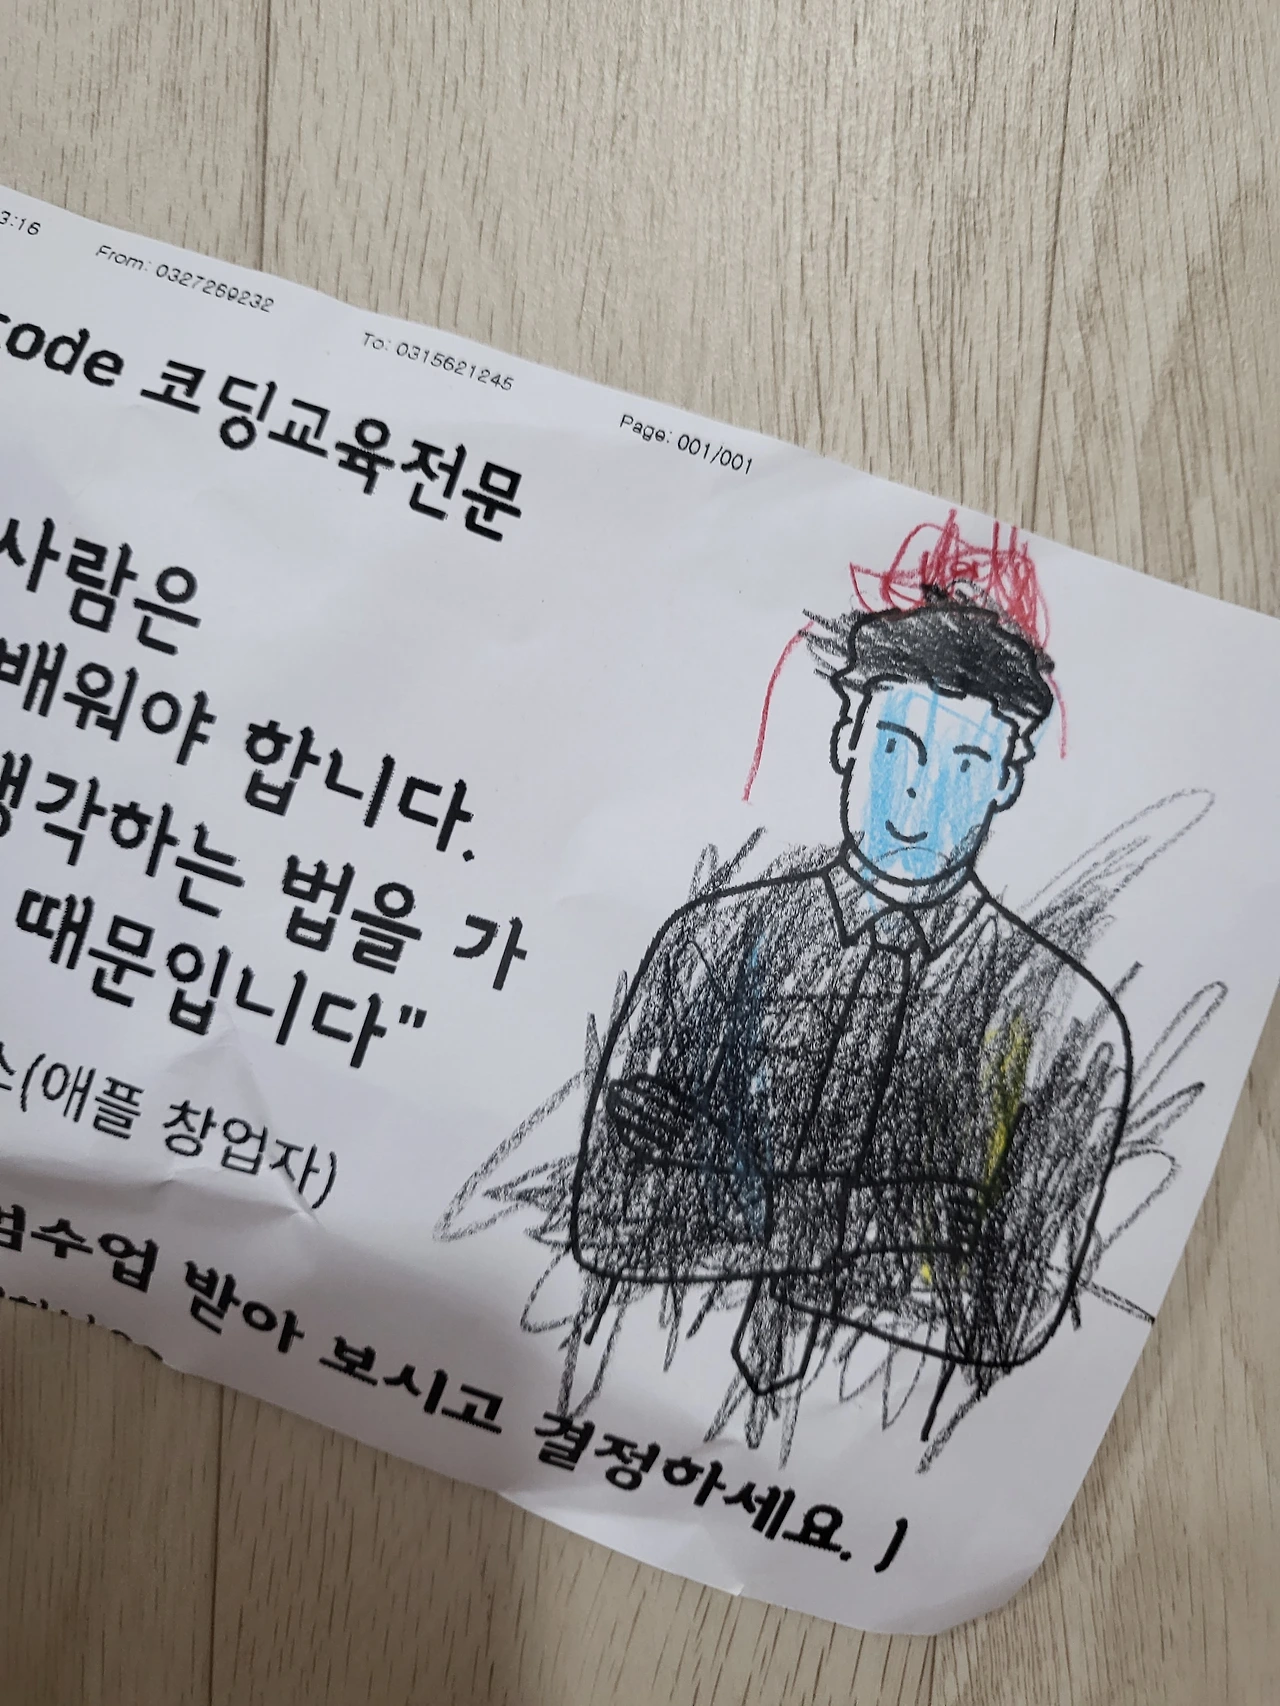 3:16 From: 0327269232 To: 0315621245 Page: 001/001
code 코딩교육전문
사람은
배워야 합니다.
생각하는 법을 가
때문입니다"
스(애플 창업자)
범수업 받아 보시고 결정하세요. )